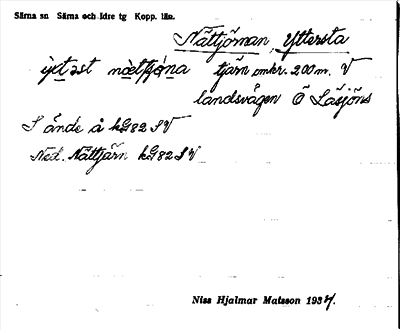 Särna sn Särna och Idre tg Kopp. län.
Nättjörnan, Yttersta
tjärn omkr. 200 m. V
landsvägen Ö Läsjöns
S ände å kG82SV
Ned. Nättjärn kG82SV
Niss Hjalmar Matsson 1937.